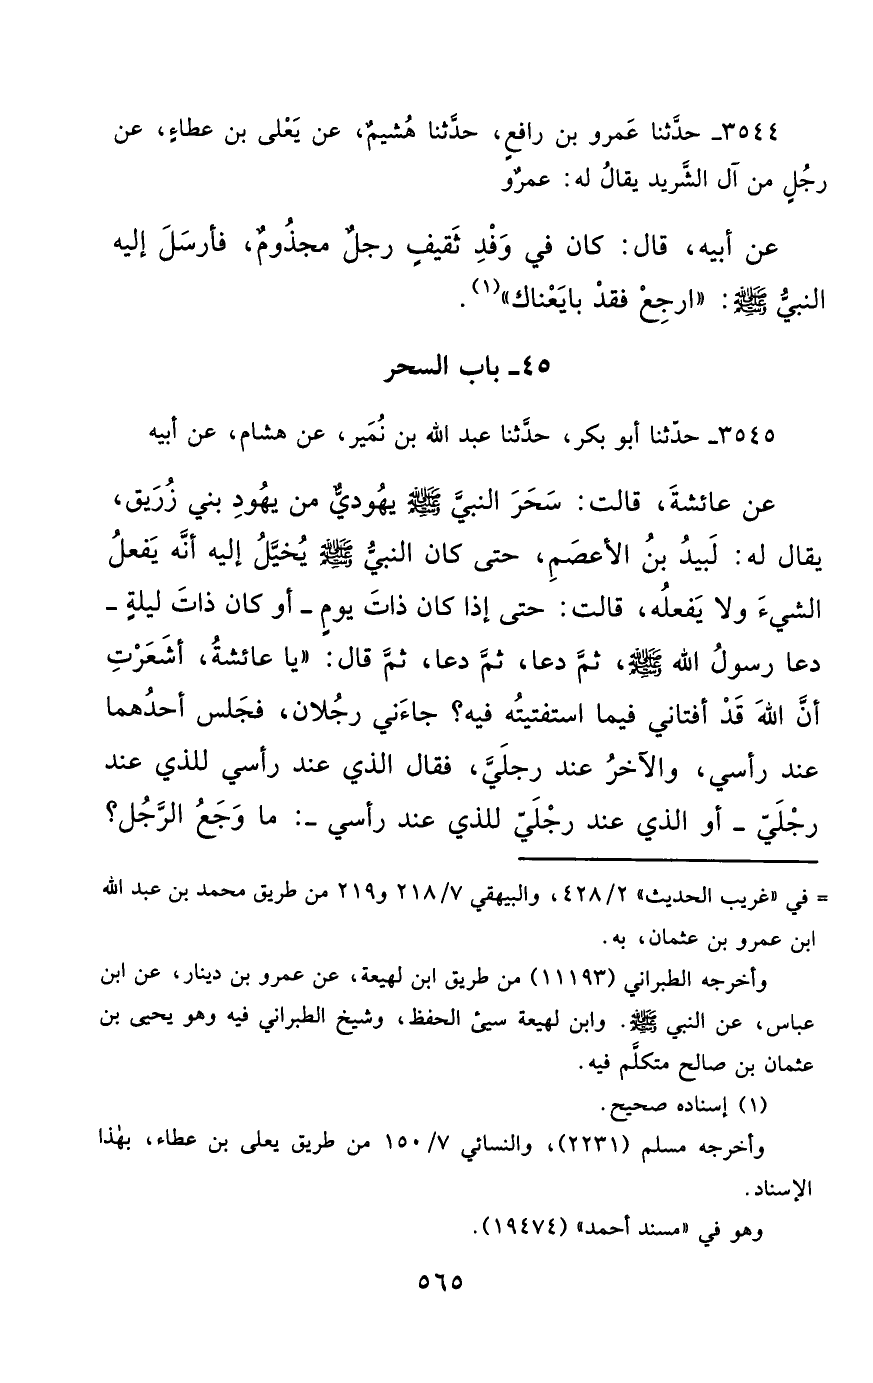 ٣٥٤٤ـ حدَّثنا عَمرو بن رافعٍ، حدَّثنا هُشيمٌ، عن يَعْلى بن عطاءٍ، عن
رجُلٍ من آل الشَّريد يقالُ له: عمرٌو
عن أبيه، قال: كان في وَفْدِ ثَقيفٍ رجلٌ مجذُومٌ، فأرسَلَ إليه
النبيُّ ﷺ: «ارجِعْ فقدْ بايَعْناك»(١).
٤٥ـ باب السحر
٣٥٤٥ـ حدّثنا أبو بكر، حدَّثنا عبد الله بن نُمَير، عن هشام، عن أبيه
عن عائشةَ، قالت: سَحَرَ النبيَّ ﷺ يهُوديٌّ من يهُودِ بني زُرَيق،
يقال له: لَبيدُ بنُ الأعصَمِ، حتى كان النبيُّ ﷺ يُخيَّلُ إليه أنَّه يَفعلُ
الشيءَ ولا يَفعلُه، قالت: حتى إذا كان ذاتَ يومٍ ـ أو كان ذاتَ ليلةٍ ـ
دعا رسولُ الله ﷺ، ثمَّ دعا، ثمَّ دعا، ثمَّ قال: «يا عائشةُ، أشَعَرْتِ
أنَّ اللهَ قَدْ أفتاني فيما استفتيتُه فيه؟ جاءَني رجُلان، فجَلس أحدُهما
عند رأسي، والآخرُ عند رجلَيَّ، فقال الذي عند رأسي للذي عند
رجْلَيّ ـ أو الذي عند رجْلَيّ للذي عند رأسي ـ: ما وَجَعُ الرَّجُل؟
= في «غريب الحديث» ٤٢٨/٢، والبيهقي ٢١٨/٧ و٢١٩ من طريق محمد بن عبد الله
ابن عمرو بن عثمان، به.
وأخرجه الطبراني (١١١٩٣) من طريق ابن لهيعة، عن عمرو بن دينار، عن ابن
عباس، عن النبي ﷺ. وابن لهيعة سيئ الحفظ، وشيخ الطبراني فيه وهو يحيى بن
عثمان بن صالح متكلَّم فيه.
(١) إسناده صحيح.
وأخرجه مسلم (٢٢٣١)، والنسائي ١٥٠/٧ من طريق يعلى بن عطاء، بهٰذا
الإسناد.
وهو في «مسند أحمد» (١٩٤٧٤).
٥٦٥